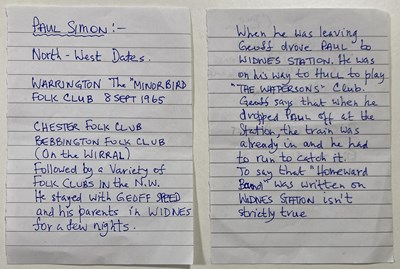 PAUL SIMON :-
North-West Dates.
WARRINGTON The "MINORBIRD
FOLK CLUB 8 SEPT 1965
CHESTER FOLK CLUB
BEBBINGTON FOLK CLUB
(On the WIRRAL)
Followed by a Variety of
FOLK CLUBS IN the N.W.
He stayed with GEOFF SPEED
and his parents in WIDNES
for a few nights.
When he was leaving
Geoff drove PAUL to
WIDNES STATION. He was
on his way to HULL to play
"THE WATERSONS" Club.
Geoff says that when he
dropped PAUL off at the
Station, the train was
already in and he had
to run to catch it.
To say that "Homeward
Bound" was written on
WIDNES STATION isn't
strictly true